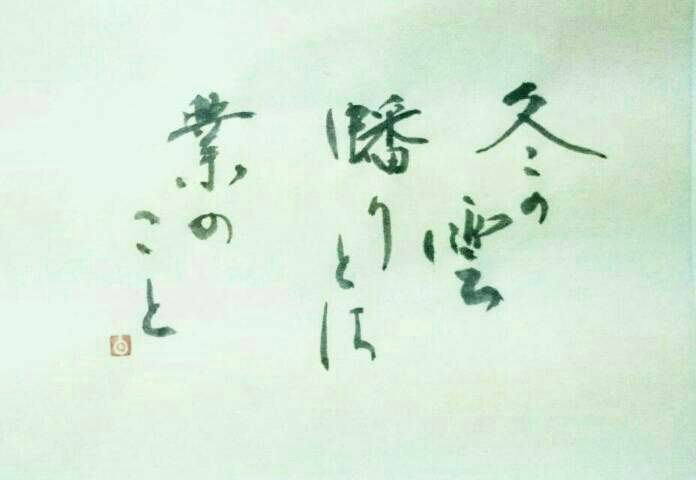 冬の
雲
蟠りとは
業の
こと